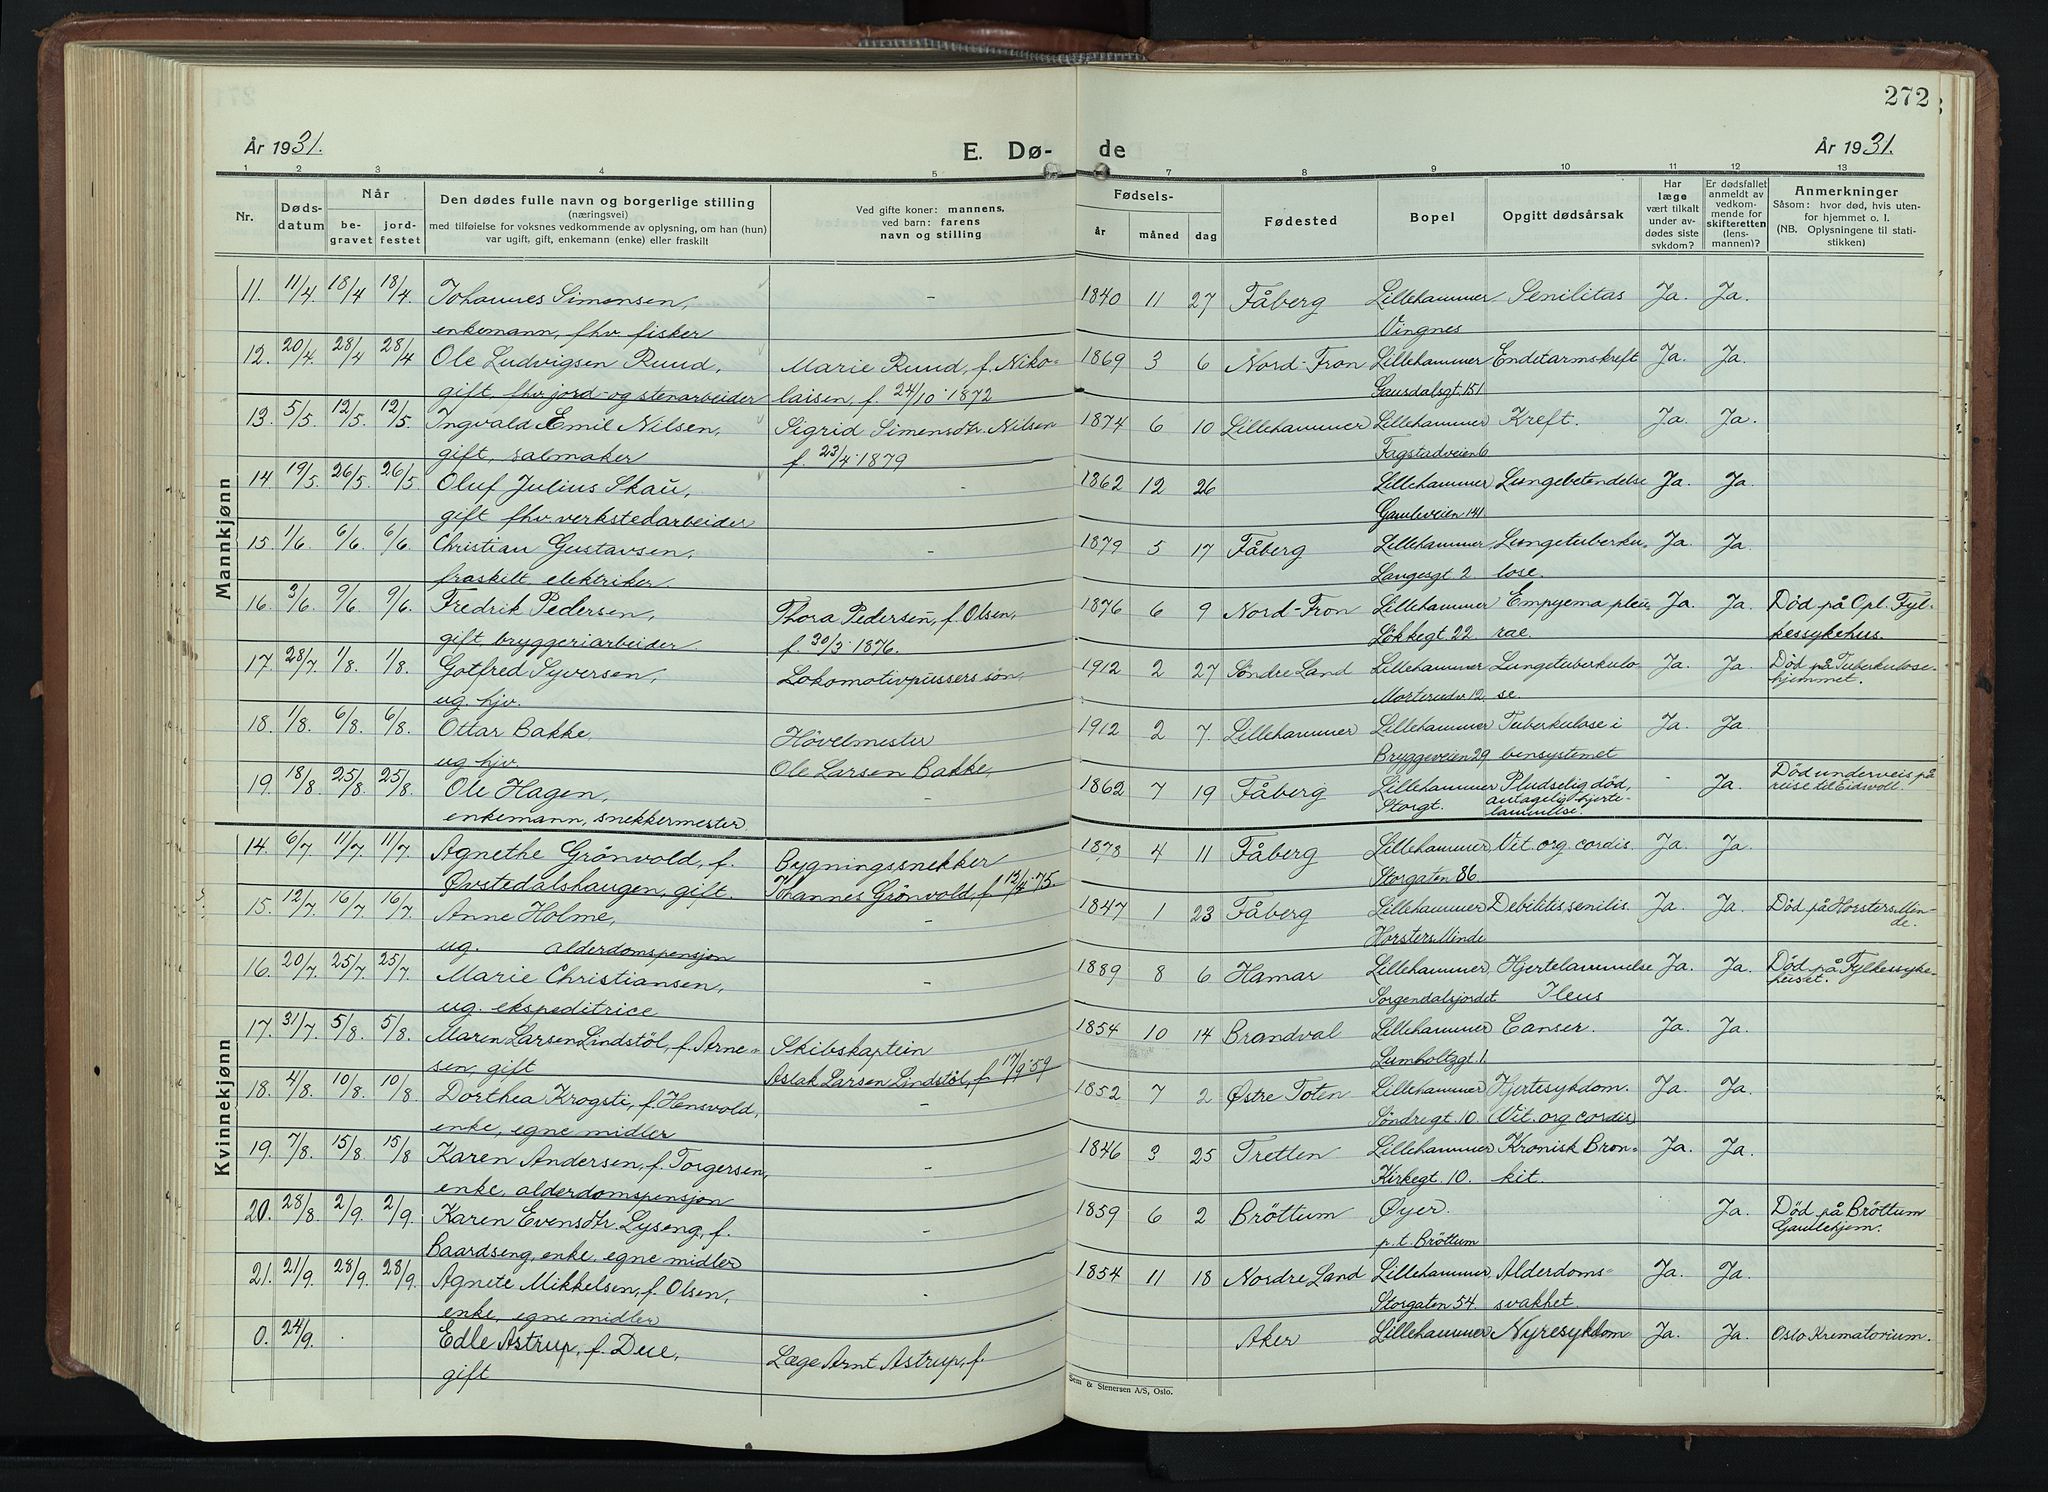 272
År 1931.
E. Dø-
de
År 1931.
1 2 3 4 5 7 8 9 10 11 12 13
Nr.
Døds-
datum
Når
be-
gravet
jord-
festet
Den dødes fulle navn og borgerlige stilling
(næringsvei)
med tilføielse for voksnes vedkommende av oplysning, om han (hun)
var ugift, gift, enkemann (enke) eller fraskilt
Ved gifte koner: mannens,
ved barn: farens
navn og stilling
Fødsels-
år måned dag
Fødested
Bopel
Opgitt dødsårsak
Har
læge
vært tilkalt
under av-
dødes siste
sykdom?
Er dødsfallet
anmeldt av
vedkom-
mende for
skifteretten
(lens-
mannen)?
Anmerkninger
Såsom: hvor død, hvis uten-
for hjemmet o. l.
(NB. Oplysningene til stati-
stikken)
Mannkjønn
11. 11/4. 18/4 18/4. Johannes Simensen, - 1840 11 27 Fåberg Lillehammer Senilitas Ja. Ja.
enkemann, fhv fisker Vingnes
12. 20/4. 28/4 28/4 Ole Ludvigsen Ruud, Marie Ruud, f. Niko- 1869 3 6 Nord-Fron Lillehammer Endetarmskreft Ja. Ja.
gift, fhv jord- og stenarbeider laisen, f. 24/10 1872 Gausdalsgt. 151
13. 5/5. 12/5. 12/5. Ingvald Emil Nilsen, Sigrid Simensdtr Nilsen 1874 6 10 Lillehammer Lillehammer Kreft. Ja. Ja.
gift, salmaker f. 23/4 1879 Fagstadveien 6
14. 19/5. 26/5. 26/5 Oluf Julius Skau, - 1862 12 26 Lillehammer Lungebetendelse Ja. Ja.
gift fhv verkstedarbeider Gamleveien 141
15. 1/6 6/6. 6/6 Christian Gustavsen, - 1879 5 17 Fåberg Lillehammer Lungetuberku- Ja. Ja.
fraskilt, elektriker Langesgt 2 lose.
16. 3/6. 9/6 9/6 Fredrik Pedersen, Thora Pedersen, f. Olsen, 1876 6 9 Nord-Fron Lillehammer Empyema pleu- Ja. Ja. Død på Opl. Fyl-
gift, bryggeriarbeider f. 30/3 1876. Løkkegt 22 rae. kessykehus.
17. 28/7. 1/8. 1/8. Gotfred Syversen, Lokomotivpussers søn, 1912 2 27 Søndre Land Lillehammer Lungetuberkulo- Ja. Ja. Død på Tuberkulose-
ug. hjv. se hjemmet.
18. 1/8. 6/8. 6/8. Ottar Bakke Høvelmester 1912 2 7. Lillehammer Lillehammer Tuberkulose i Ja. Ja
ug hjv. Ole Larsen Bakke, Bryggeveien 29 bensystemet
19. 18/8. 25/8. 25/8. Ole Hagen, - 1862 7 19 Fåberg Lillehammer Pludselig død, - Ja. Død underveis på
enkemann, snekkermester. Storgt. antagelig hjerte- reise til Eidsvoll.
lammelse.
Kvinnekjønn
14. 6/7. 11/7 11/7. Agnethe Grønvold, f. Bygningssnekker 1878 4 11 Fåberg Lillehammer Vit. org. cordis. Ja. Ja.
Øvstedalshaugen, gift. Johannes Grønvold, f 13/4 75. Storgaten 86.
15. 12/7. 16/7. 16/7. Anne Holme, - 1847 1 23 Fåberg Lillehammer Debilitis, senilis. Ja. Ja. Død på Horsters Min-
ug. alderdomspensjon Horsters Minde de.
16. 20/7. 25/7. 25/7. Marie Christiansen, - 1889 8 6 Hamar Lillehammer Hjertelammelse Ja. Ja. Død på Fylkessyke-
ug. ekspeditrice Sorgendalsjordet Ileus huset.
17. 31/7. 5/8. 5/8. Maren Larsen Lindstöl, f. Arne- Skibskaptein 1854 10 14 Brandval Lillehammer Canser. Ja. Ja.
sen, gift Aslak Larsen Lindstöl, f. 17/9 59 Lumholtzgt 1.
18. 4/8. 10/8. 10/8 Dorthea Krogsti, f. Hensvold, - 1852 7 2 Østre Toten Lillehammer Hjertesykdom. Ja. Ja.
enke, egne midler Søndregt 10. (Vit. org cordis)
19. 7/8. 15/8. 15/8 Karen Andersen, f. Torgersen, - 1846 3 25 Tretten Lillehammer Kronisk Bron- Ja. Ja.
enke, alderdomspensjon Kirkegt. 10. kit.
20. 28/8. 2/9. 2/9. Karen Evensdtr Lyseng, f. - 1859 6 2 Brøttum Øyer. Ja. Død på Brøttum
Baardseng, enke, egne midler p. t. Brøttum Gamlehjem.
21. 21/9. 28/9. 28/9. Agnete Mikkelsen, f. Olsen, - 1854 11 18 Nordre Land Lillehammer, Alderdoms- Ja. Ja.
enke, egne midler Storgaten 54 svakhet.
0. 24/9. . Edle Astrup, f. Due, Læge Arnt Astrup, f. Aker Lillehammer Nyresykdom Ja. Ja. Oslo Krematorium.
gift
Sem & Stenersen A/S, Oslo.